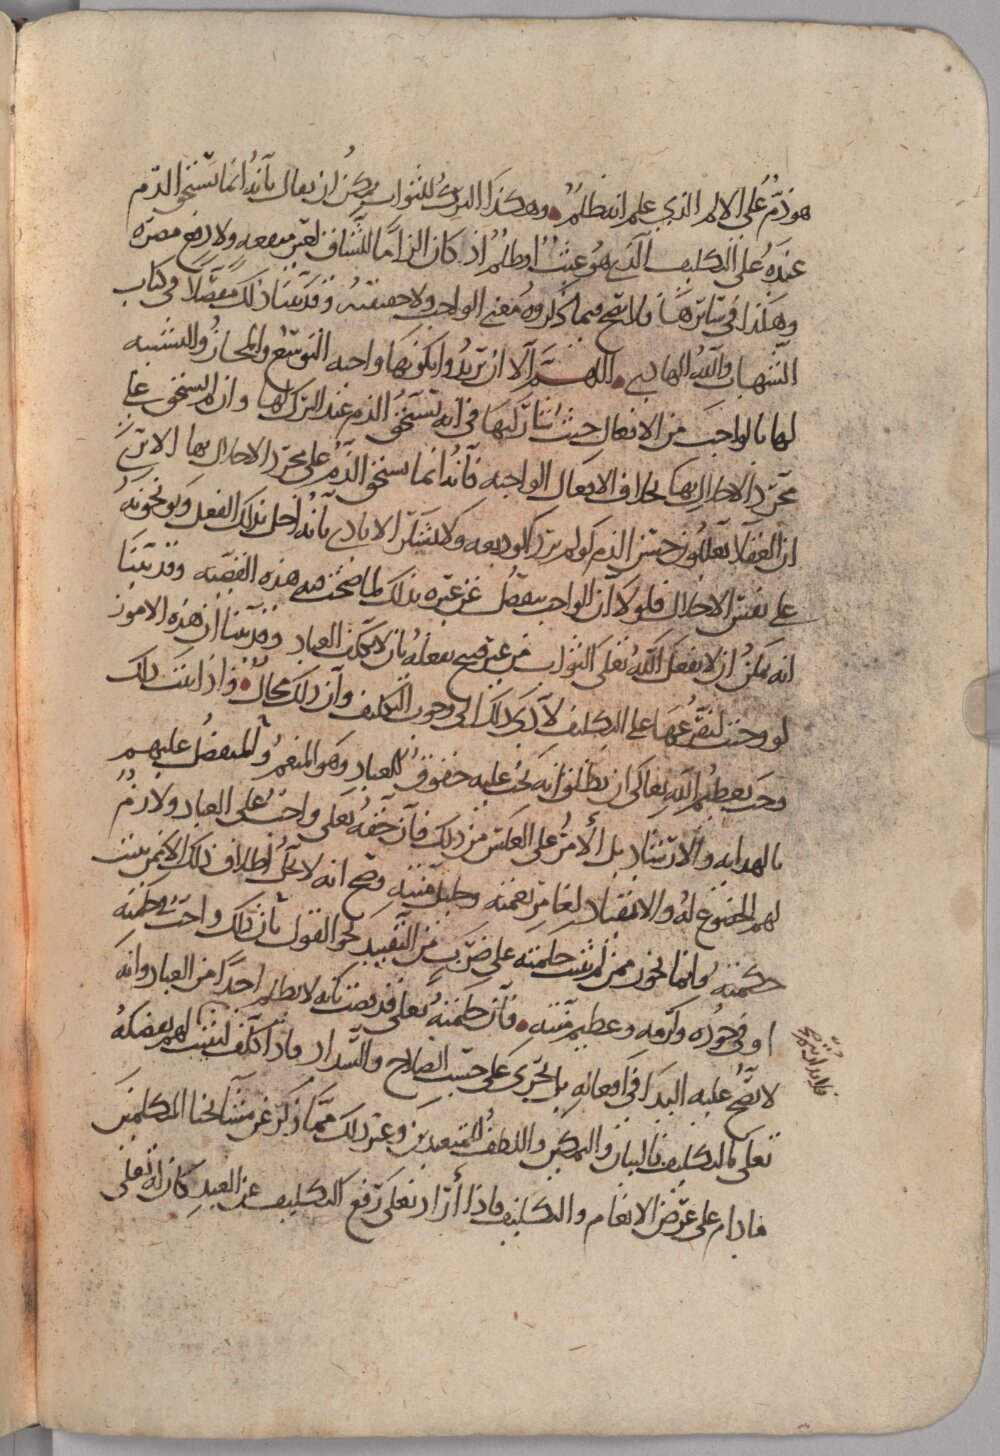 هو ذم على الالم الذي علم انه ظلم وهكذا الترك للثواب يمكن ان يقال بانه انما يستحق الذم
عنده على التكليف الذي هو عبث او ظلم اذ كان الزاما للشاق لغير منفعه ولا دفع مضره
وهكذا في سائرها فلم يتضح فيما ذكروه معنى الواجب ولا حقيقته وقد بينا ذلك مفصلا في كتاب
الشهاب والله الهادي اللهم الا ان يريدوا بكونها واجبه التوسع والمجاز والتشبيه
لها بالواجب من الافعال حيث شاركتها في انه يستحق الذم عند الترك لها وان لم يستحق على
مجرد الاخلال بها بخلاف الافعال الواجبه فانه انما يستحق الذم على مجرد الاخلال بها الا ترى
ان العقلا يعلمون حسن الذم لمن لم يرد الوديعه ولا يشكر الايادي بانه اخل بذلك الفعل ويوبخونه
على نفس الاخلال فلولا ان الواجب ينفصل عن غيره بذلك لما صحت فيه هذه القضيه وقد بينا
انه يمكن ان لا يفعل الله تعلى الثواب من غير قبيح يفعله بان لا يكلف العباد وقد بينا ان هذه الامور
لو وجبت لتفرعها على التكليف لادى ذلك الى وجوب التكليف وان ذلك محال واذا ثبت ذلك
وجب تعظيم الله تعالى ان يطلق انه يجب عليه حقوق للعباد وهو المنعم والمتفضل عليهم
بالهدايه والارشاد بل الامر على العكس من ذلك فان حقه تعلى واجب على العباد ولازم
لهم الخضوع له والانقياد لغامر نعمته وجليل مننه وصح انه لا يجوز اطلاق ذلك الا ممن يثبت
حكمته وانما يجوز ممن لم يثبت حكمته على ضرب من التقييد نحو القول بان ذلك واجب في حكمته
او في جوده وكرمه وعظيم مننه فان حكمته تعلى قد قضت بانه لا يظلم احدا من العباد وانه
لا يصح عليه البدا في افعاله بل تجري على حسب الصلاح والسداد فاذا كلف ليثيت لهم بعضكه
تعلى بالتكليف فالبيان والتمكين واللطف للمتعبدين وغير ذلك مما ذكر عن مشائخنا المتكلمين
مادام على عرض الانعام والتكليف فاذا اراد تعلى رفع التكليف عن العبد كان له تعلى